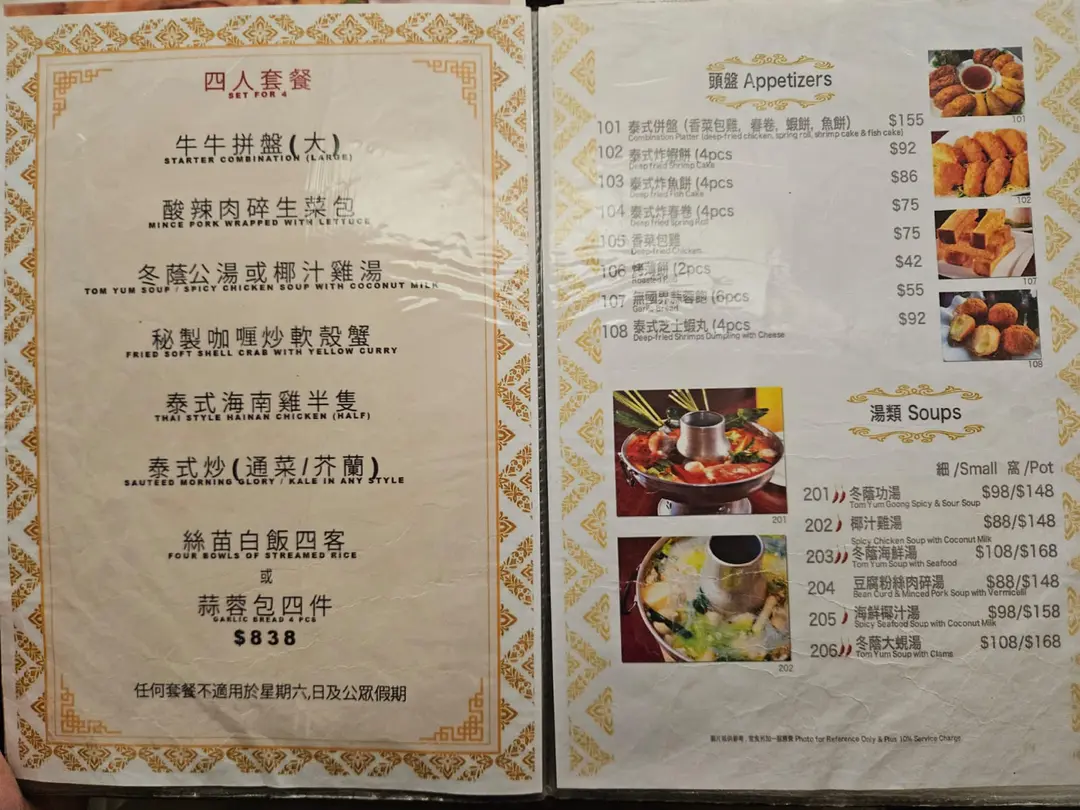 四人套餐
SET FOR 4
牛牛拼盤(大)
STARTER COMBINATION (LARGE)
酸辣肉碎生菜包
MINCE PORK WRAPPED WITH LETTUCE
冬蔭公湯或椰汁雞湯
TOM YUM SOUP / SPICY CHICKEN SOUP WITH COCONUT MILK
秘製咖喱炒軟殼蟹
FRIED SOFT SHELL CRAB WITH YELLOW CURRY
泰式海南雞半隻
THAI STYLE HAINAN CHICKEN (HALF)
泰式炒(通菜/芥蘭)
SAUTEED MORNING GLORY / KALE IN ANY STYLE
絲苗白飯四客
FOUR BOWLS OF STREAMED RICE
或
蒜蓉包四件
GARLIC BREAD 4 PCS
$838
任何套餐不適用於星期六,日及公眾假期
頭盤 Appetizers
101 泰式併盤 (香菜包雞, 春卷, 蝦餅, 魚餅) $155
Combination Platter (deep-fried chicken, spring roll, shrimp cake & fish cake)
102 泰式炸蝦餅 (4pcs $92
Deep fried Shrimp Cake
103 泰式炸魚餅 (4pcs $86
Deep fried Fish Cake
104 泰式炸春卷 (4pcs $75
Deep fried Spring Roll
105 香菜包雞 $75
Deep-fried Chicken
106 烤薄餅 (2pcs $42
Roasted
107 無國界蒜蓉飽 (6pcs $55
Garlic Bread
108 泰式芝士蝦丸 (4pcs $92
Deep-fried Shrimps Dumpling with Cheese
101
102
107
108
湯類 Soups
細 /Small 窩 /Pot
201 冬蔭功湯 $98/$148
Tom Yum Goong Spicy & Sour Soup
202 椰汁雞湯 $88/$148
Spicy Chicken Soup with Coconut Milk
203 冬蔭海鮮湯 $108/$168
Tom Yum Soup with Seafood
204 豆腐粉絲肉碎湯 $88/$148
Bean Curd & Minced Pork Soup with Vermicelli
205 海鮮椰汁湯 $98/$158
Spicy Seafood Soup with Coconut Milk
206 冬蔭大蜆湯 $108/$168
Tom Yum Soup with Clams
201
202
Photo for Reference Only & Plus 10% Service Charge